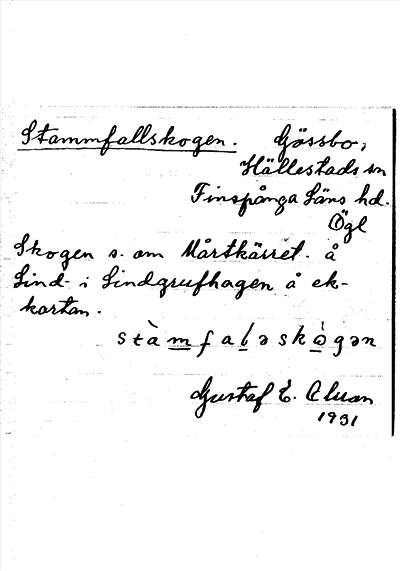 Stammfallskogen. Gössbo,
Hällestads sn
Finspånga Läns hd.
Ögl
Skogen s. om Mårtkärret. å
Lind- i Lindgrufhagen å ek-
kartan.
stàmfaləskò̀gən
Gustaf E.
1931